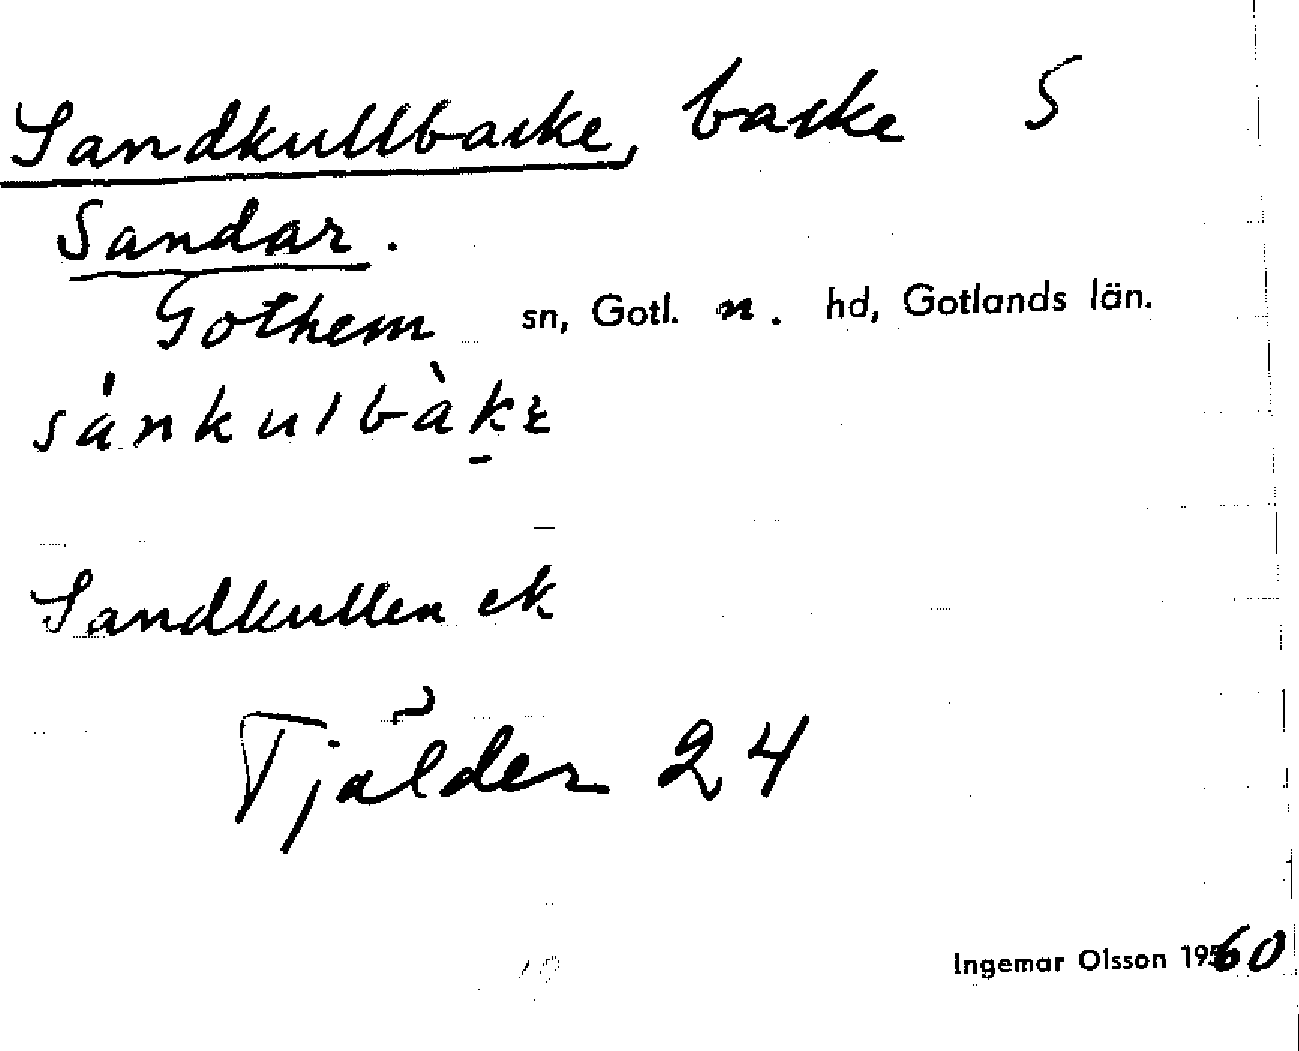 Sandkullbacke, backe S
Sandar.
Gothem sn, Gotl. n. hd, Gotlands län.
sánkulbàkε
Sandkullen ek
Tjälder 24
Ingemar Olsson 1960